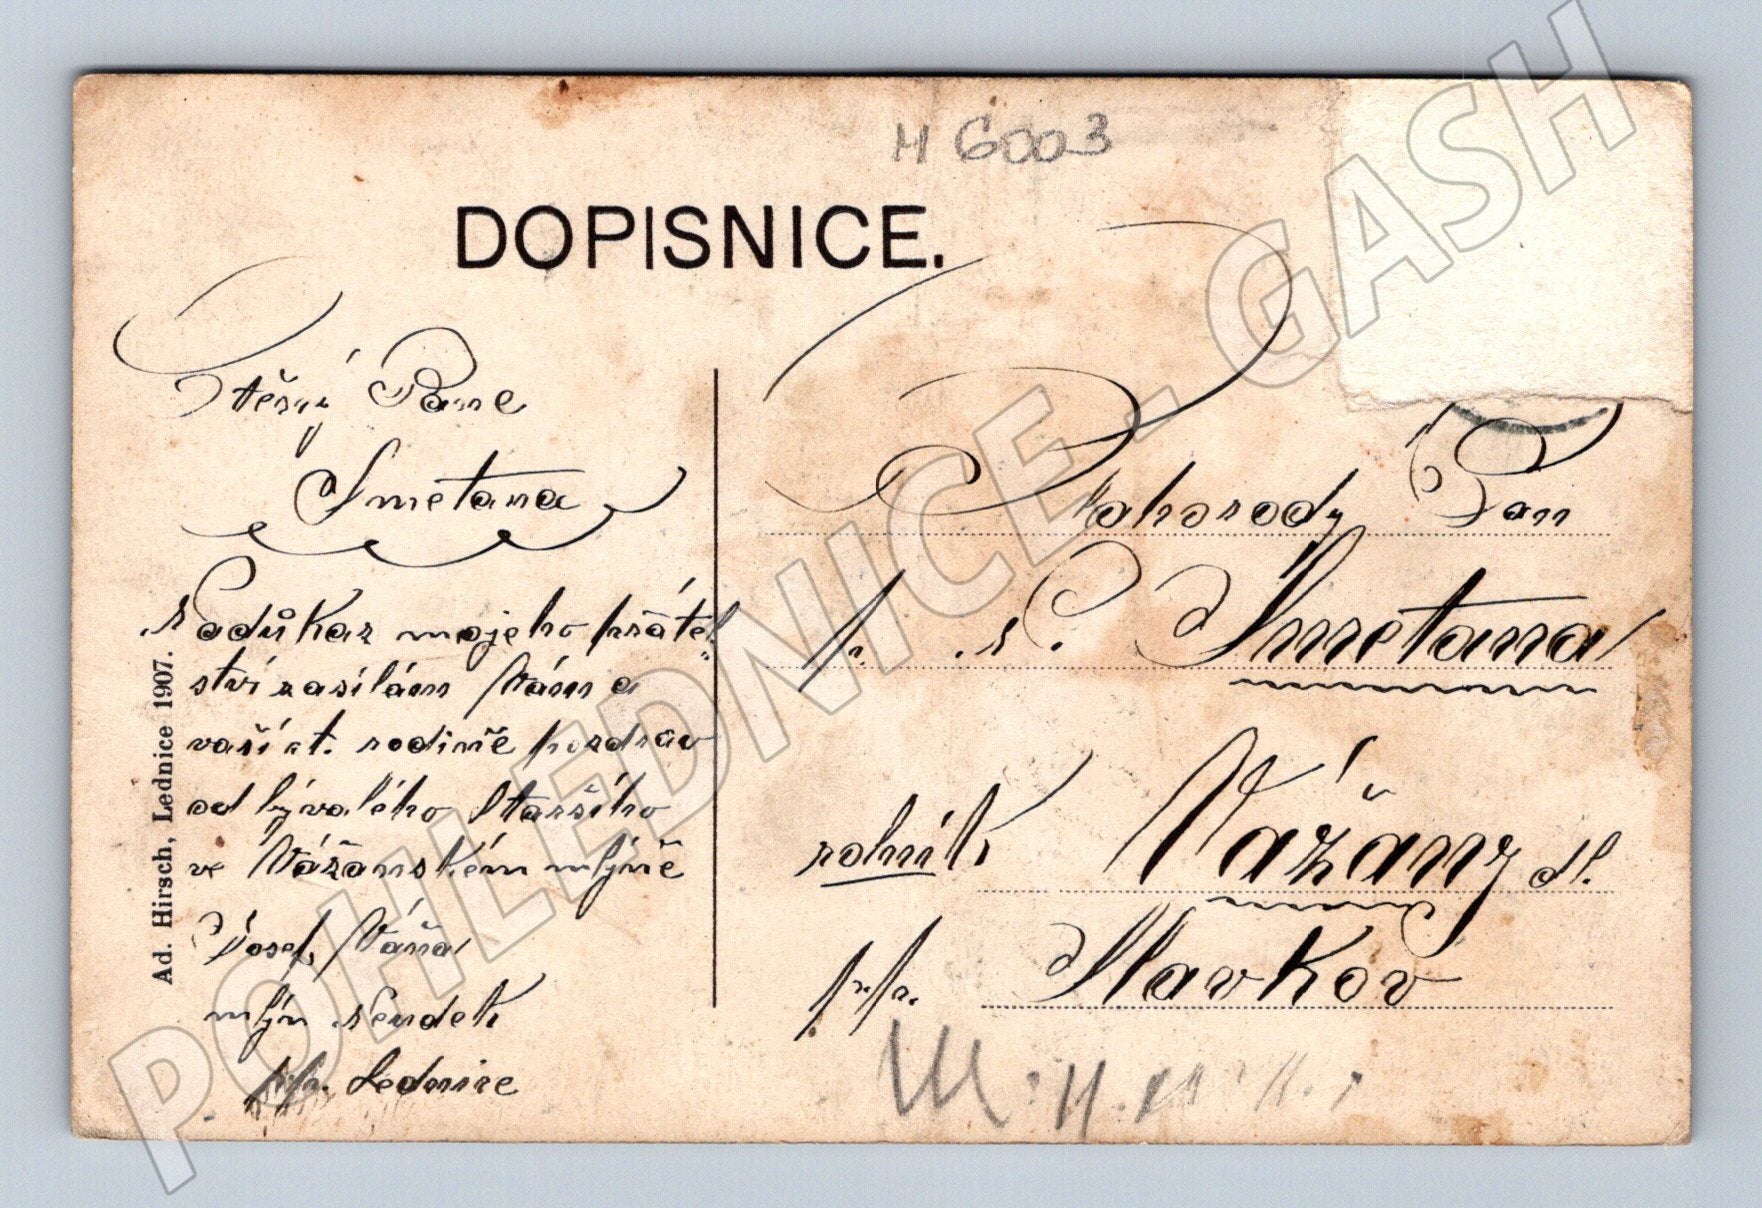 H 6003
DOPISNICE.
Ctěný Pane
Smetana
Na důkaz mojeho přátel
ství zasílám Vám a
vaší ct. rodině pozdrav
od bývalého Staršího
ve Vážanském mlýně
Josef Váňa
mlýn Neudek
p/p. Lednice
Ad. Hirsch, Lednice 1907.
Blahorody Pan
p. n. Smetana
rolník Vážany dl.
p./p. Slavkov
POHLEDNICE - GASH